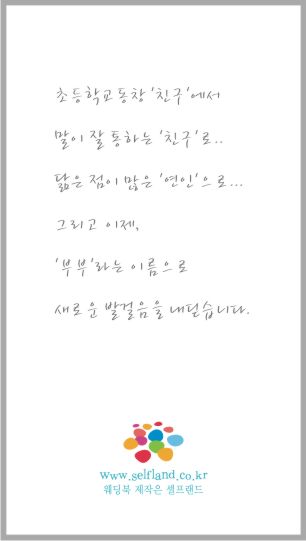 초등학교동창 '친구'에서
말이 잘 통하는 '친구'로..
닮은 점이 많은 '연인'으로...
그리고 이제,
'부부'라는 이름으로
새로운 발걸음을 내딛습니다.
www.selfland.co.kr
웨딩북 제작은 셀프랜드